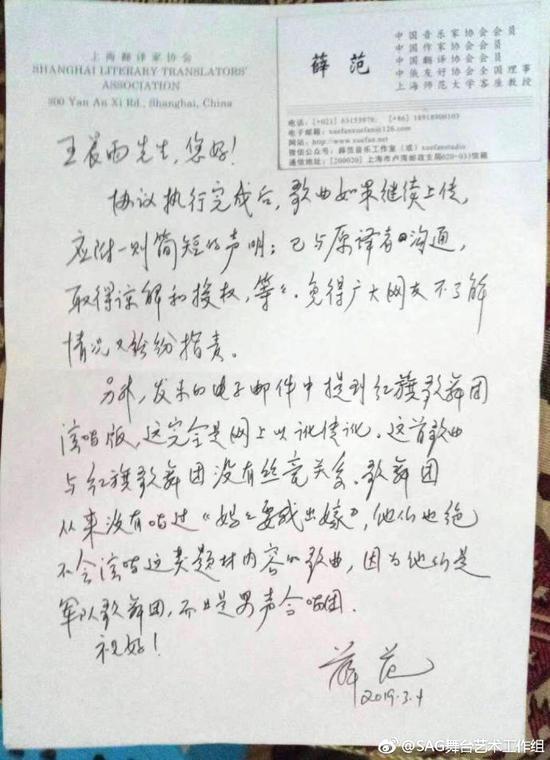 上海翻译家协会
SHANGHAI LITERARY TRANSLATORS'
ASSOCIATION
800 Yan An Xi Rd., Shanghai, China
薛 范
中国音乐家协会会员
中国作家协会会员
中国翻译协会会员
中俄友好协会全国理事
上海师范大学客座教授
电话：(+021) 63153970； (+86) 18918900103
电子邮箱：xuefanxuefan@126.com
http://www.xuefan.net
微信公众号：薛范音乐工作室（或）xuefanstudio
通信地址：[200020] 上海市卢湾邮政支局020-033信箱
王晨雨先生，您好！
协议执行完成后，歌曲如果继续上传，
应附一则简短的声明：已与原译者沟通，
取得谅解和授权，等等。免得广大网友不了解
情况又纷纷指责。
另外，发来的电子邮件中提到红旗歌舞团
演唱版，这完全是网上以讹传讹。这首歌曲
与红旗歌舞团没有丝毫关系。歌舞团
从来没有唱过《妈妈要我出嫁》，他们也绝
不会演唱这类题材内容的歌曲，因为他们是
军队歌舞团，而且是男声合唱团。
祝好！
薛范
2019.3.4
@SAG舞台艺术工作组